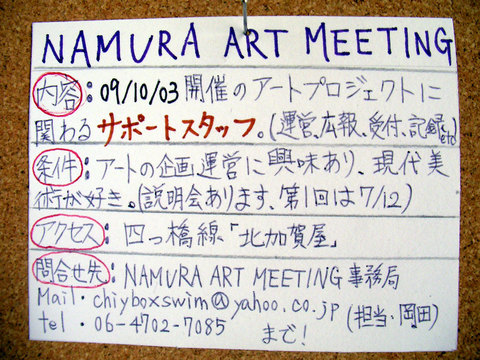 NAMURA ART MEETING
内容:09/10/03開催のアートプロジェクトに
関わるサポートスタッフ。(運営、広報、受付、記録etc)
条件:アートの企画運営に興味あり、現代美
術が好き。(説明会あります、第1回は7/12)
アクセス:四つ橋線「北加賀屋」
問合せ先:NAMURA ART MEETING事務局
Mail・chiyboxswim@yahoo.co.jp (担当、岡田)
tel・06-4702-7085 まで!